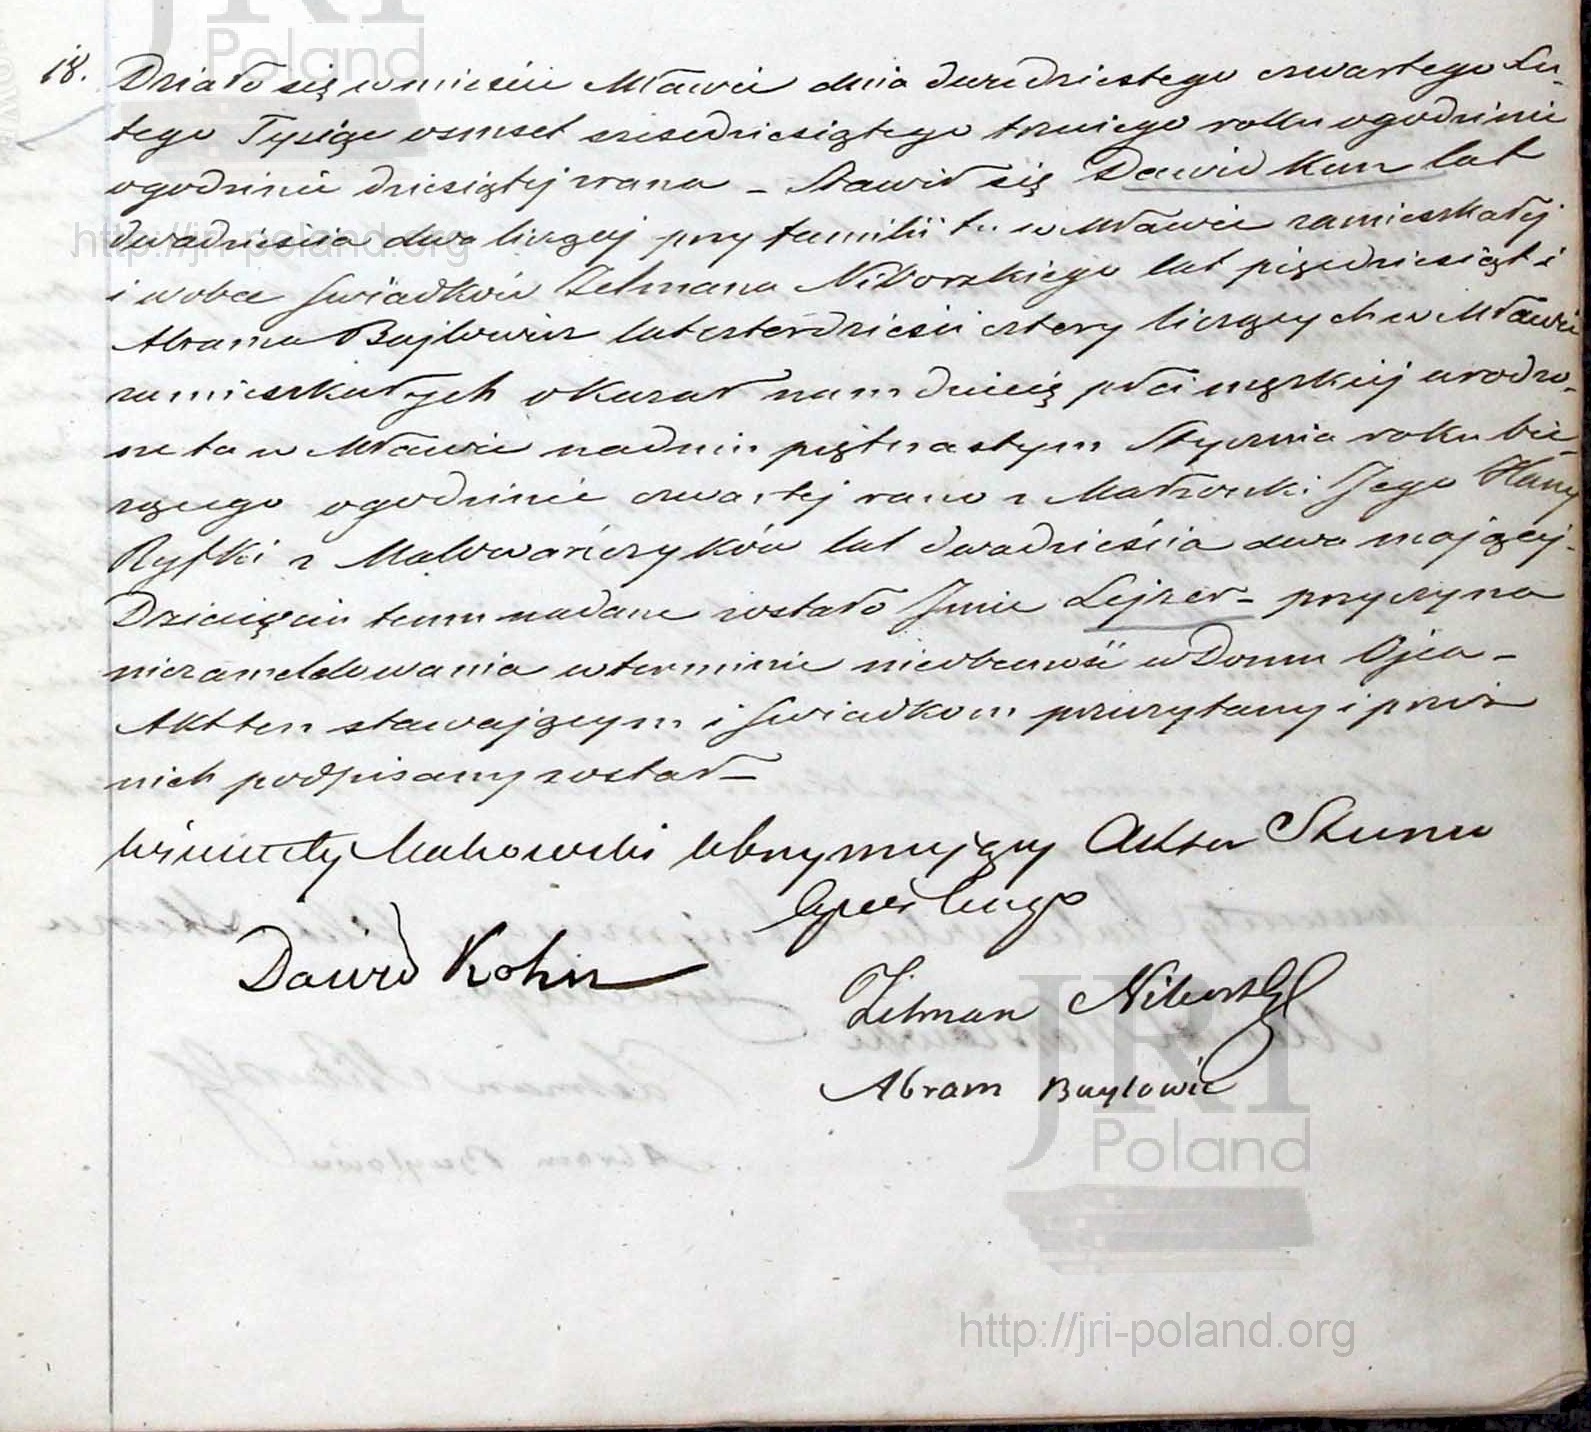 JRI
Poland
http://jri-poland.org
18. Działo się w mieście Mławie dnia dwudziestego czwartego Lu-
tego Tysiąc osmset szesedziesiątego trzeciego roku o godzinie
o godzinie dziesiątej z rana – Stawił się Dawid Kun lat
dwadzieścia dwa liczący przy familii tu w Mławie zamieszkałej
i w obec Swiadków Zelmana Niborskiego lat pięędziesiąt i
Abrama Bajlowicz lat czterdzieści cztery liczących w Mławie
zamieszkałych okazał nam dziecię płci męzkiej urodzo-
ne tu w Mławie na dniu piętnastym Stycznia roku bie-
rzącego o godzinie czwartej rano z Małżonki Jego Hany
Ryfki z Malowańczyków lat dwadzieścia dwa mającej.
Dziecięciu temu nadane zostało Imie Lejzer – przyczyna
niezameldowania w terminie nieobecność w Domu Ojca –
Akt ten stawającym i Swiadkom przeczytany i przez
nich podpisany został –
Wincenty Makowski Utrzymujący Akta Stanu
Cywilnego
Dawid Kohn
Zelman Niborski
Abram Baylowic
JRI
Poland
http://jri-poland.org